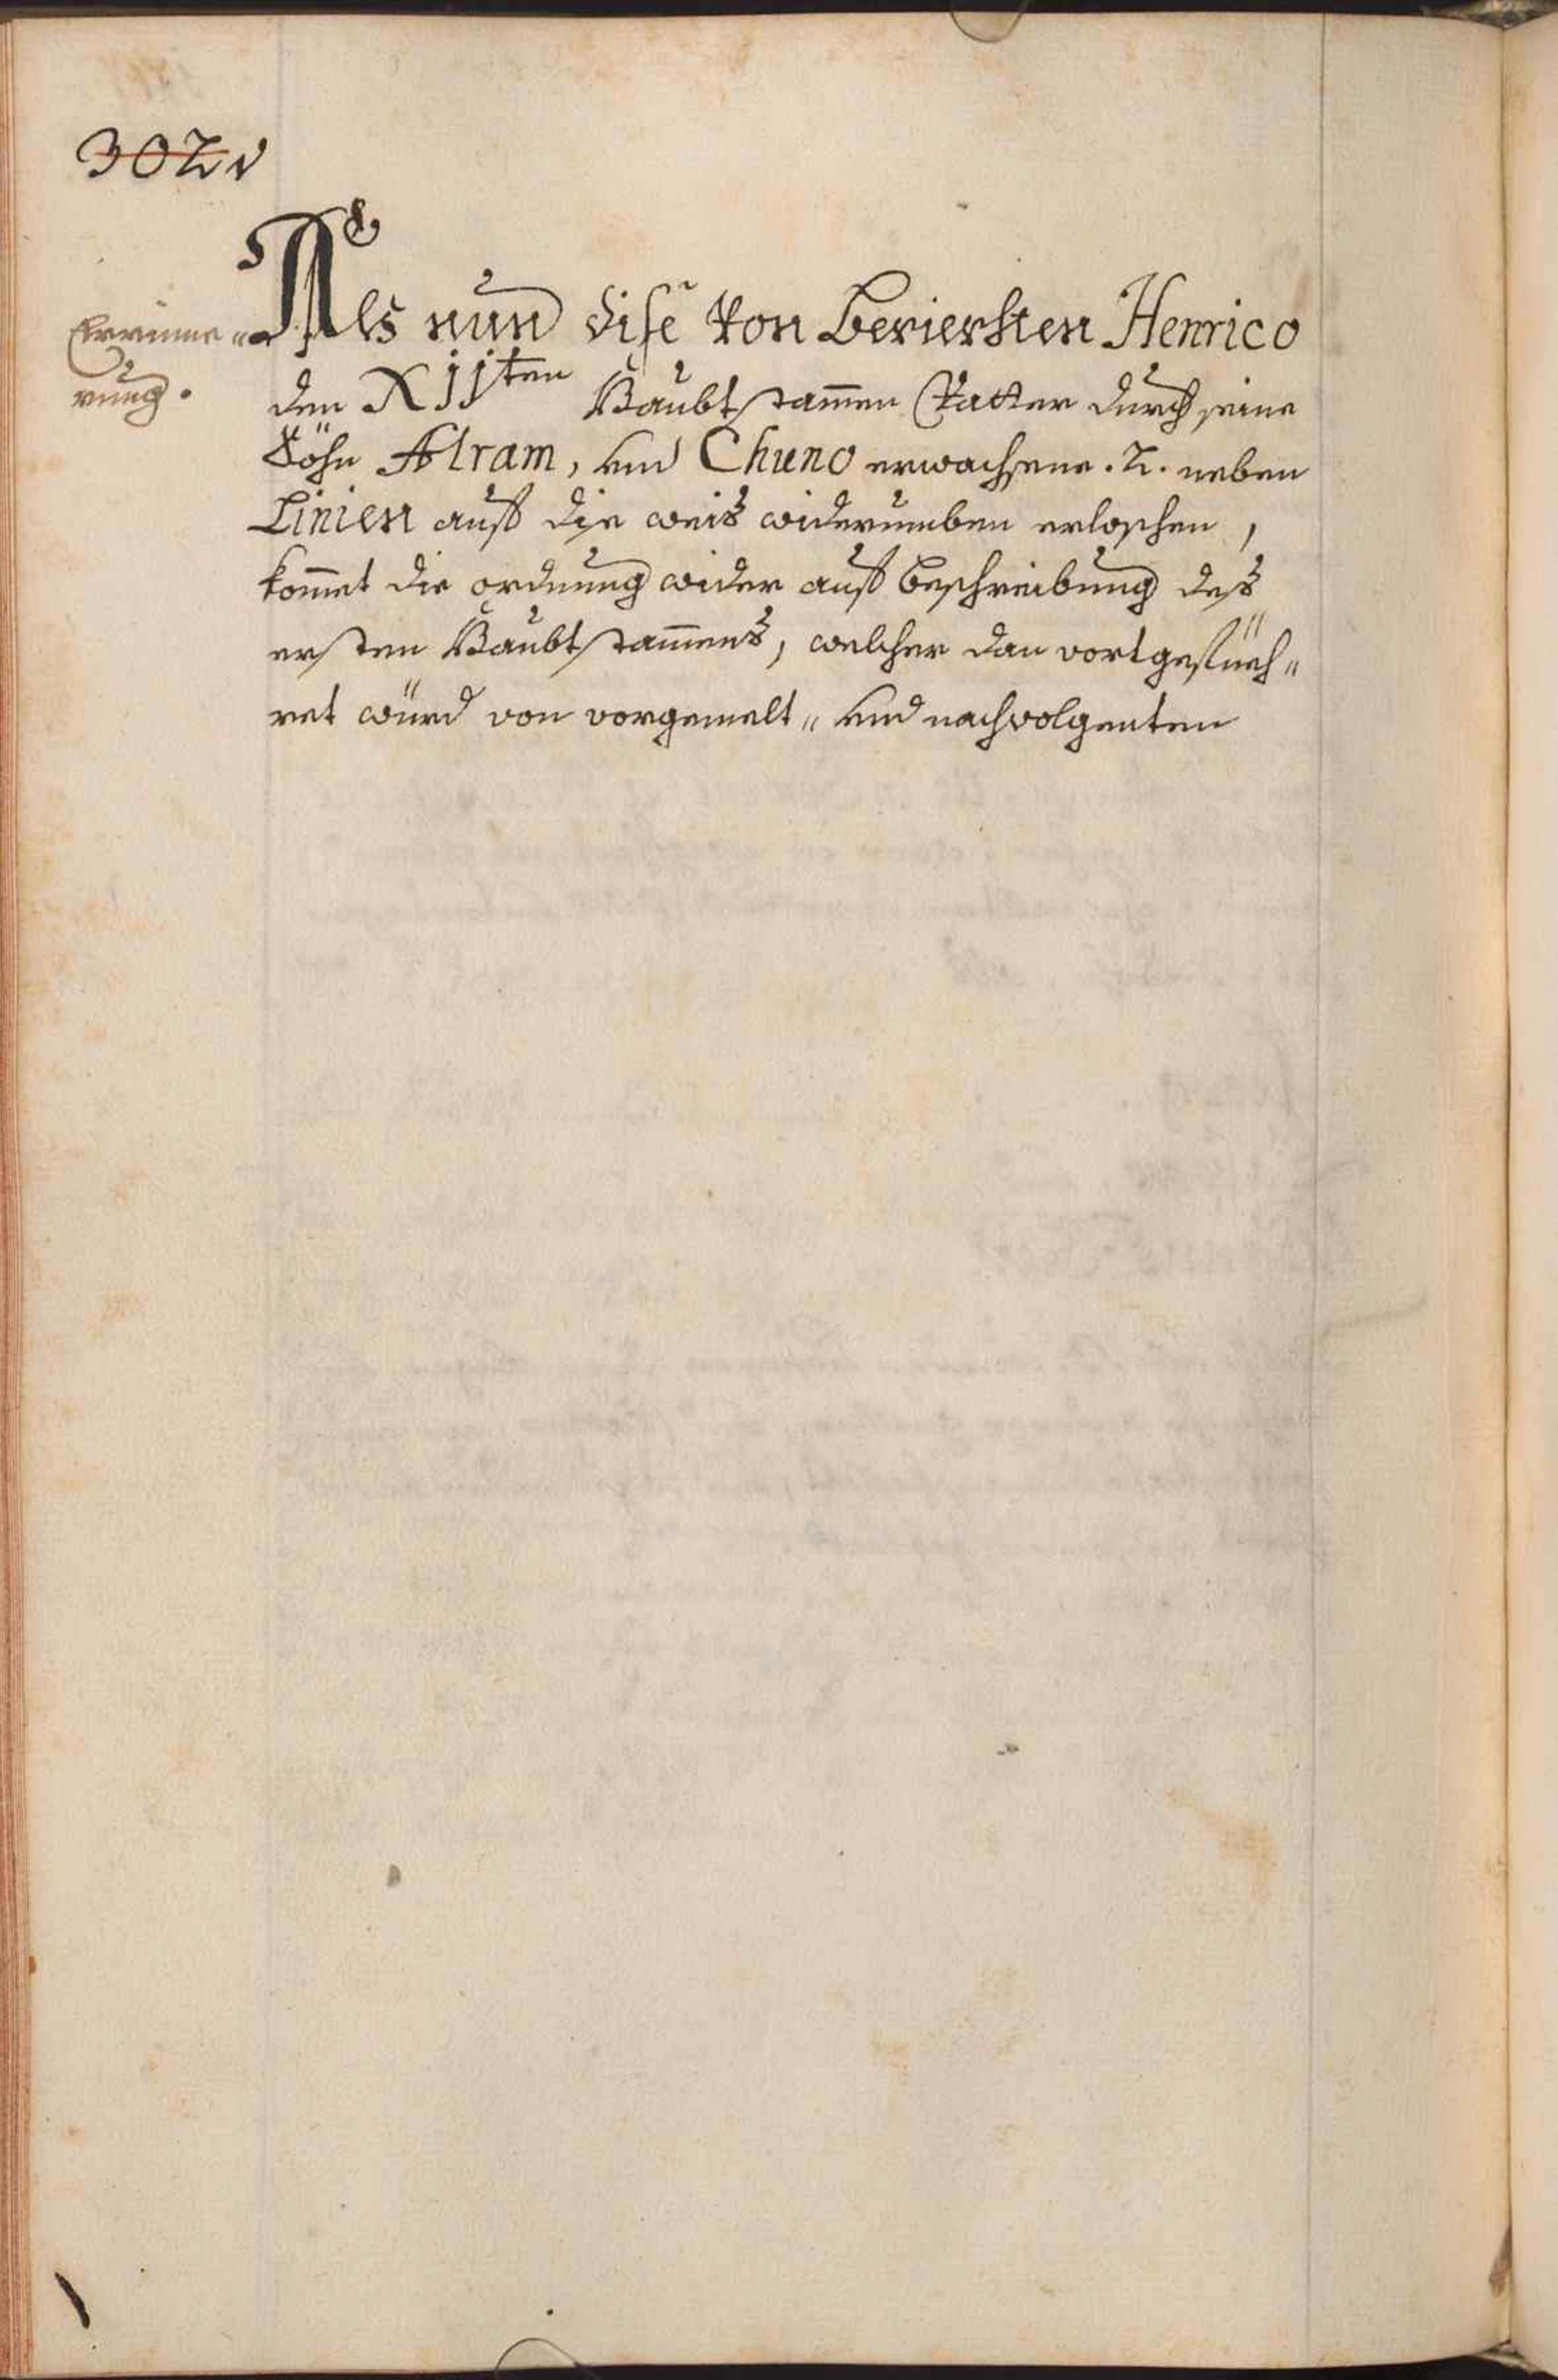 302v
Errinne„
rung.
Als nun dise von berierten Henrico
den Xijten Haubt stammen Vatter durch seine
Söhn Alram, und Chuno erwachsene .2. neben
Linien auf die weis widerumben erloschen,
kom̄et die ordnung wider auf beschreibung des
ersten Haubt stam̄ens, welcher dan vortgefüeh„
ret würd von vorgemelt„ und nachvolgenten